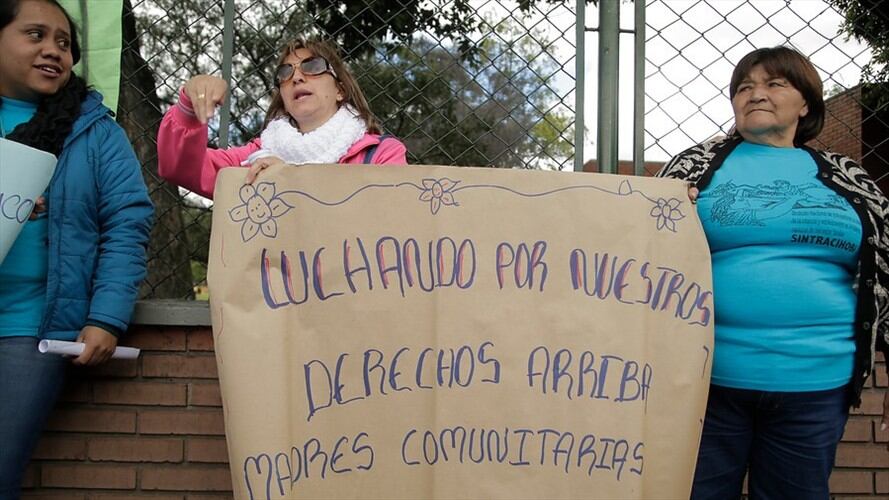 LUCHANDO POR NUESTROS
DERECHOS ARRIBA
MADRES COMUNITARIAS
SINTRACIHOBI
ICO